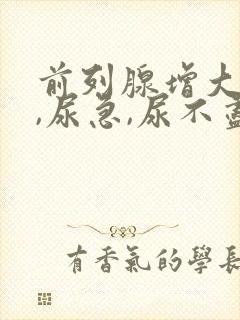 前列腺增大
,尿急,尿不盡
有香氣的學長